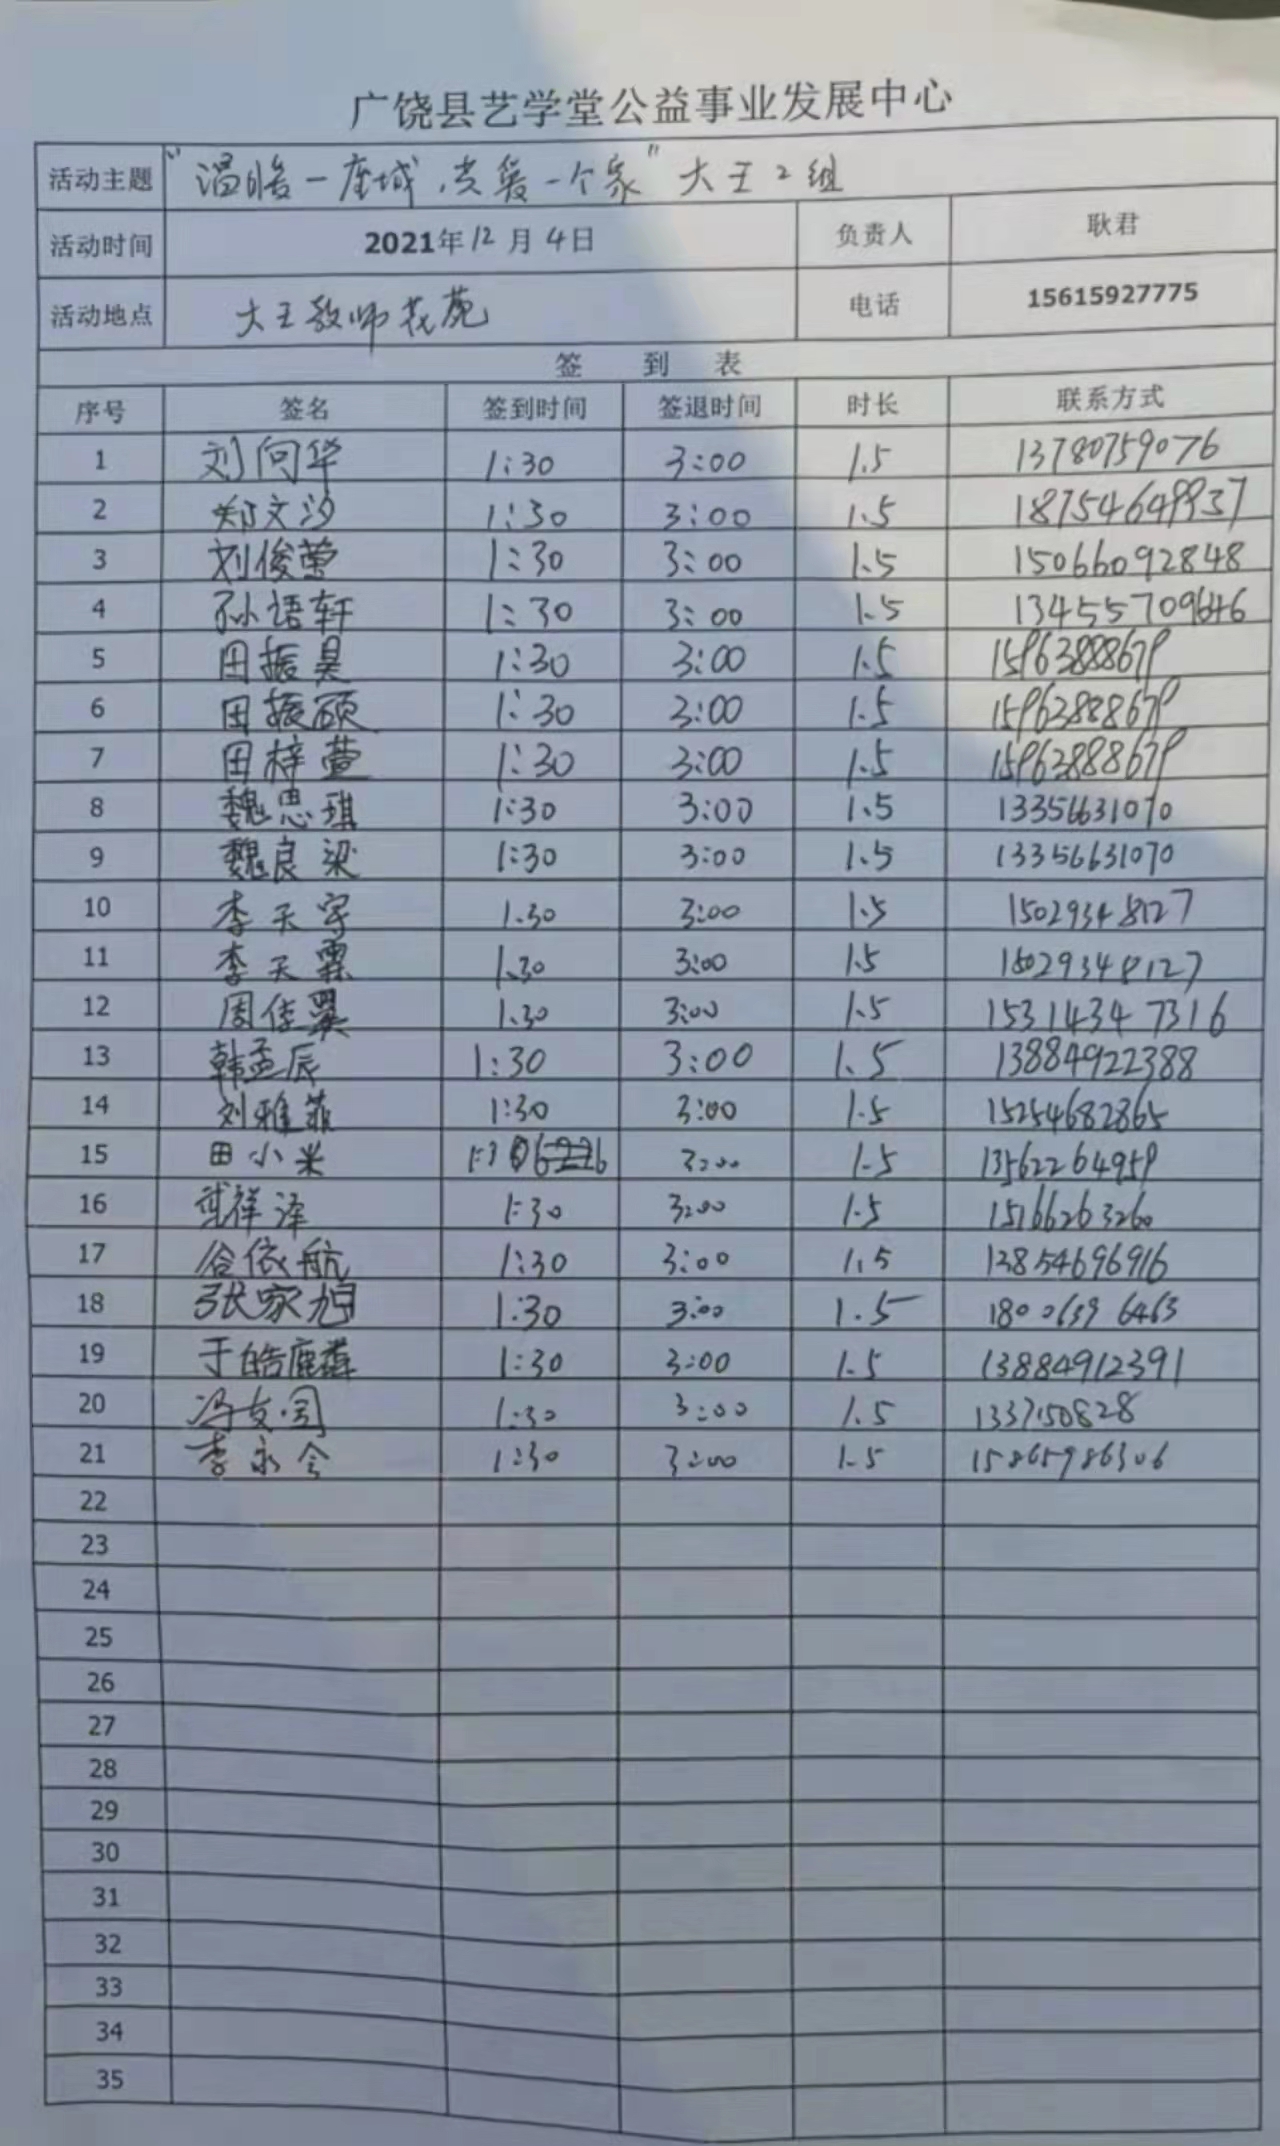 广饶县艺学堂公益事业发展中心
活动主题 "温暖一座城,关爱一个家"大王2组
活动时间 2021年12月4日 负责人 耿君
活动地点 大王教师花苑 电话 15615927775
签 到 表
序号 签名 签到时间 签退时间 时长 联系方式
1 刘向华 1:30 3:00 1.5 13780759076
2 郑文汐 1:30 3:00 1.5 18754649937
3 刘俊莹 1:30 3:00 1.5 15066092848
4 孙语轩 1:30 3:00 1.5 13455709646
5 田振昊 1:30 3:00 1.5 15963888679
6 田振硕 1:30 3:00 1.5 15963888679
7 田梓萱 1:30 3:00 1.5 15963888679
8 魏思琪 1:30 3:00 1.5 13356631070
9 魏良梁 1:30 3:00 1.5 13356631070
10 李天宇 1.30 3:00 1.5 15029348127
11 李天霖 1.30 3:00 1.5 15029348127
12 周佳翼 1.30 3:00 1.5 15314347316
13 韩孟辰 1:30 3:00 1.5 13884922388
14 刘雅菲 1:30 3:00 1.5 15254682865
15 田小米 3:00 1.5 13562264959
16 祥泽 1:30 3:00 1.5 15166263260
17 谷依航 1:30 3:00 1.5 13854696916
18 张家旭 1:30 3:00 1.5 18006396463
19 于皓 1:30 3:00 1.5 13884912391
20 冯 1:30 3:00 1.5 1337150828
21 李永令 1:30 3:00 1.5 15865986306
22
23
24
25
26
27
28
29
30
31
32
33
34
35